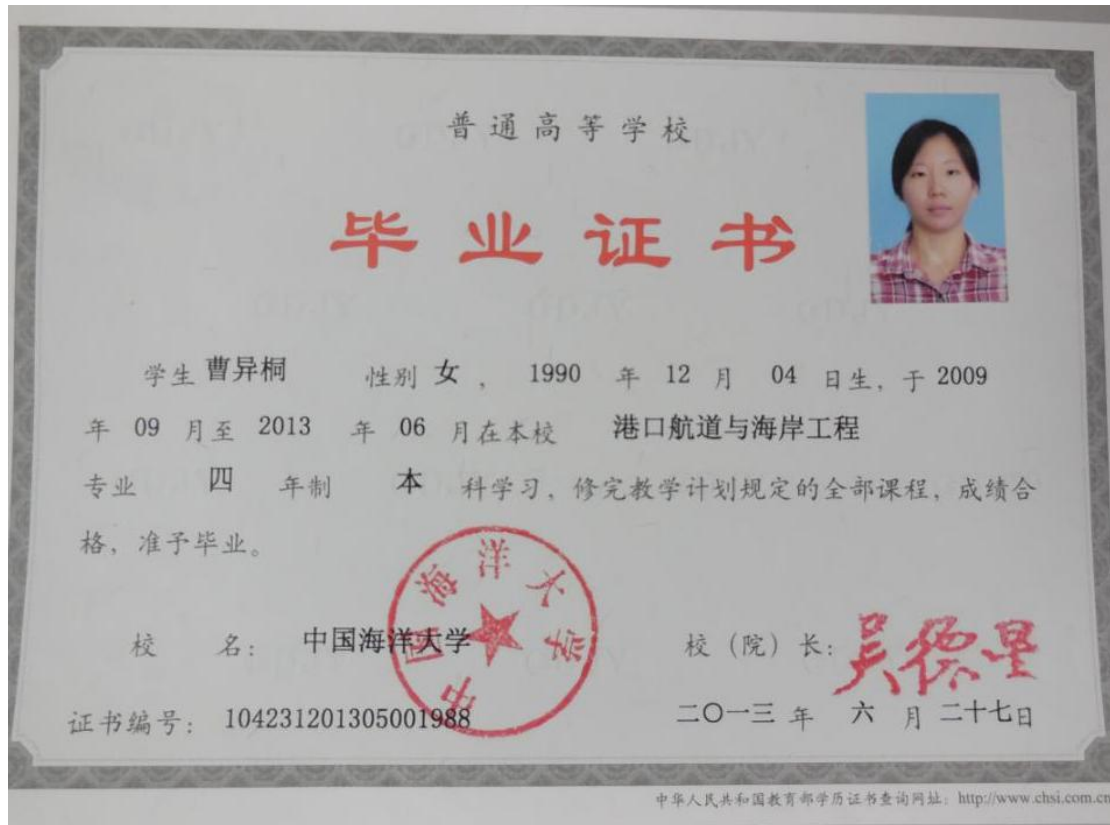 普通高等学校
毕业证书
学生 曹异桐 性别 女 , 1990 年 12 月 04 日生, 于 2009
年 09 月至 2013 年 06 月在本校 港口航道与海岸工程
专业 四 年制 本 科学习, 修完教学计划规定的全部课程, 成绩合
格, 准予毕业。
中国海洋大学
校 名: 中国海洋大学 校 (院) 长: 吴德星
证书编号: 104231201305001988 二〇一三 年 六 月 二十七日
中华人民共和国教育部学历证书查询网址: http://www.chsi.com.cn